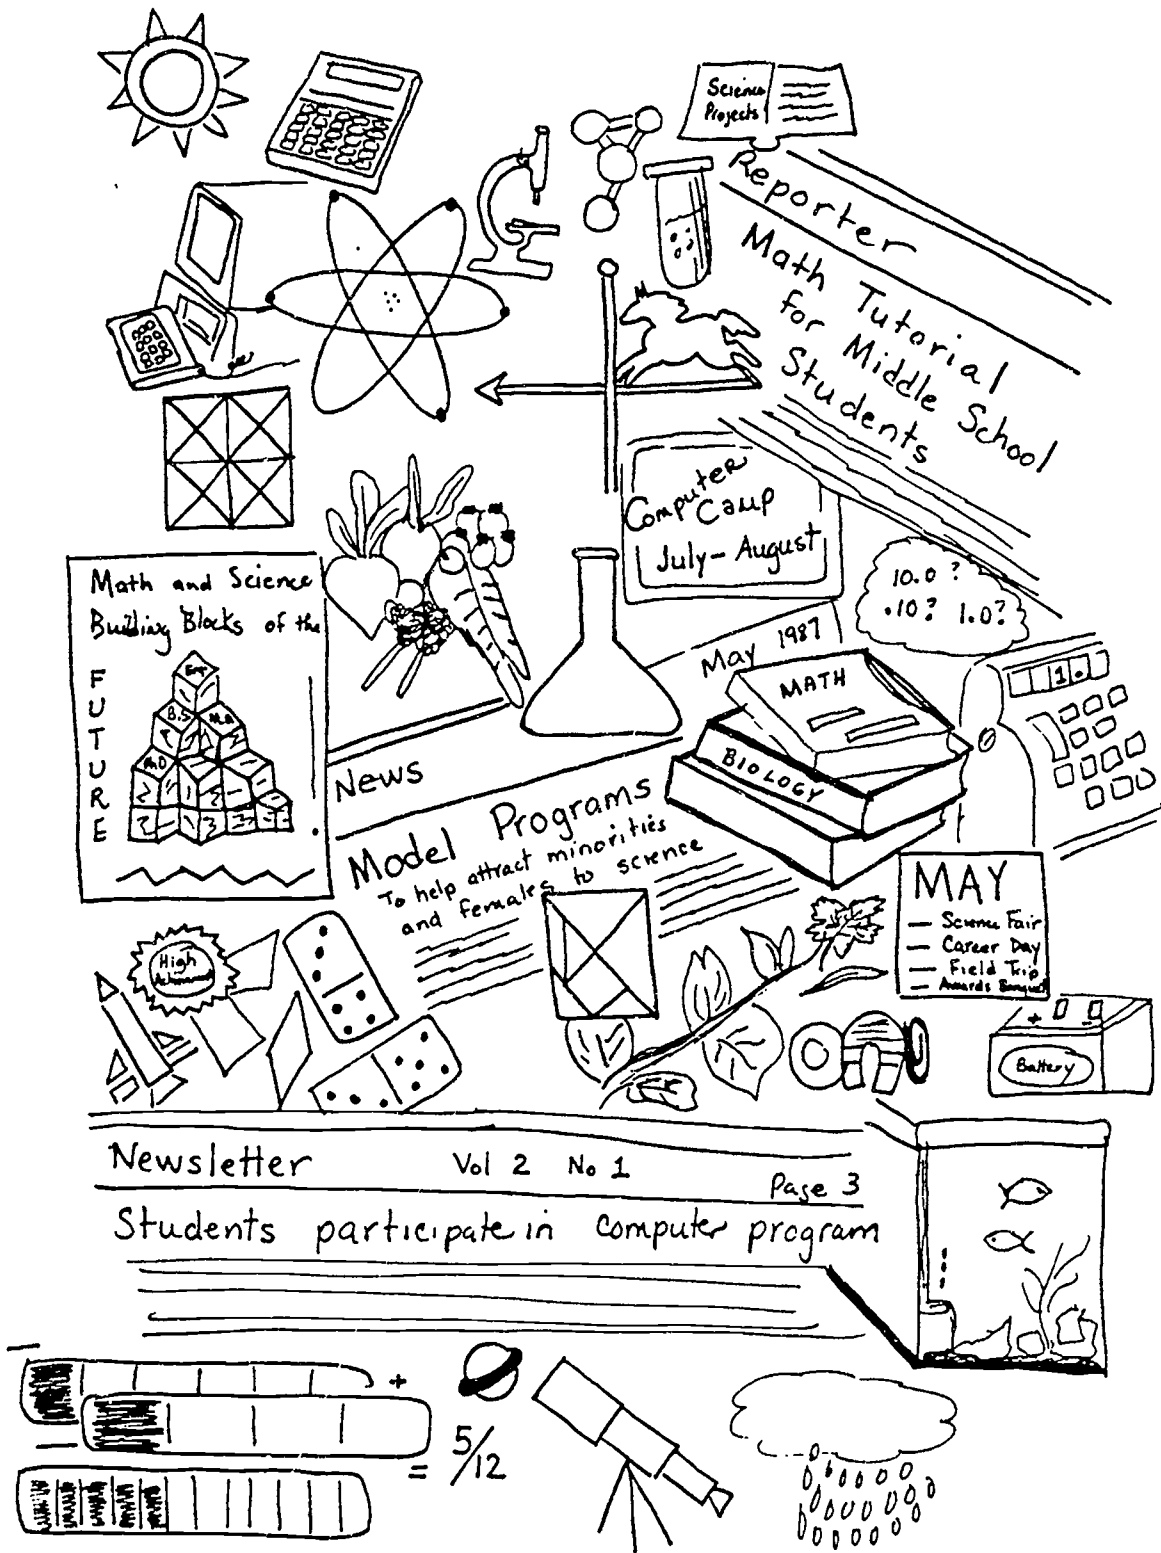 Science
Projects
Reporter
Math Tutorial
for Middle School
Students
Computer
Camp
July - August
10.0 ?
.10? 1.0?
Math and Science
Building Blocks of the
FUTURE
B.S.
M.A.
PhD
May 1987
1.
MATH
BIOLOGY
News
Model Programs
To help attract minorities
and females to science
MAY
— Science Fair
— Career Day
— Field Trip
— Awards Banquet
High
Achievement
+ -
Battery
Newsletter Vol 2 No 1
Page 3
Students participate in computer program
+
= 5/12